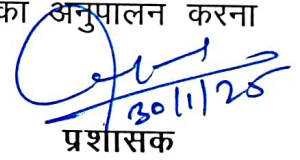 का अनुपालन करना
30/1/25
प्रशासक